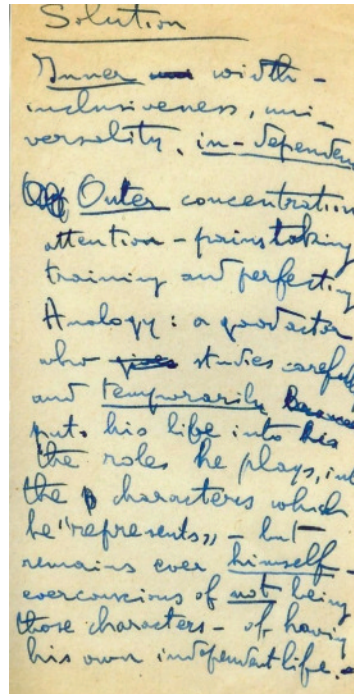 Solution
Inner width -
inclusiveness, uni-
versality, in-dependen
Outer concentration
attention - painstaking
training and perfecting
Analogy: a good actor
who studies careful
and temporarily
puts his life into his
the roles he plays, int
the characters which
he "represents" - but
remains ever himself -
everconscious of not being
those characters - of having
his own independent life. -